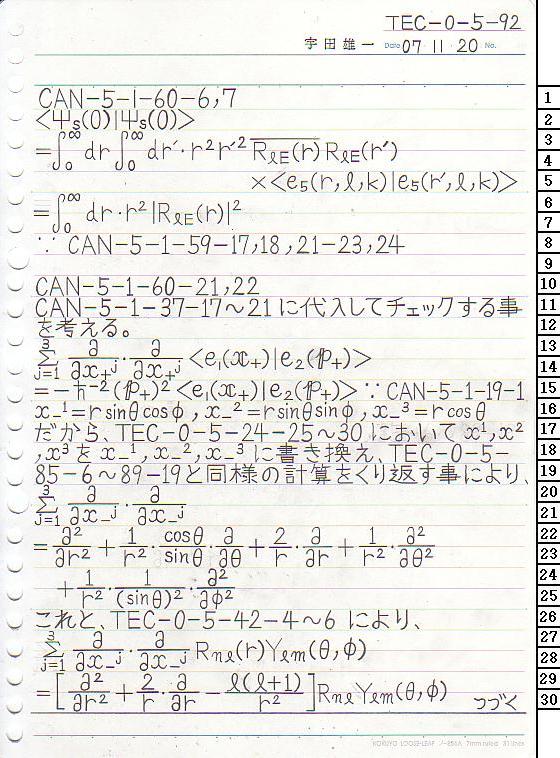 TEC-0-5-92
宇田雄一 Date 07・11・20 No.
CAN-5-1-60-6,7
<Ψs(0)|Ψs(0)>
=∫₀^∞ dr ∫₀^∞ dr′・r²r′² \overline{RℓE(r)} RℓE(r′)
×<e₅(r,ℓ,k)|e₅(r′,ℓ,k)>
=∫₀^∞ dr・r²|RℓE(r)|²
∵ CAN-5-1-59-17,18,21-23,24
CAN-5-1-60-21,22
CAN-5-1-37-17〜21 に代入してチェックする事
を考える。
Σ_{j=1}^{3} ∂/∂x₊ʲ・∂/∂x₊ʲ <e₁(x₊)|e₂(p₊)>
=-ħ⁻²(p₊)²<e₁(x₊)|e₂(p₊)> ∵ CAN-5-1-19-1
x₋¹=r sinθcosφ, x₋²=r sinθsinφ, x₋³=r cosθ
だから、TEC-0-5-24-25〜30 において x¹,x²
,x³ を x₋¹, x₋², x₋³ に書き換え、TEC-0-5-
85-6〜89-19と同様の計算をくり返す事により、
Σ_{j=1}^{3} ∂/∂x₋ʲ・∂/∂x₋ʲ
=∂²/∂r² + 1/r²・cosθ/sinθ・∂/∂θ + 2/r・∂/∂r + 1/r²・∂²/∂θ²
+ 1/r²・1/(sinθ)²・∂²/∂φ²
これと、TEC-0-5-42-4〜6 により、
Σ_{j=1}^{3} ∂/∂x₋ʲ・∂/∂x₋ʲ Rnℓ(r)Yℓm(θ,φ)
=[∂²/∂r² + 2/r・∂/∂r - ℓ(ℓ+1)/r²]RnℓYℓm(θ,φ) つづく
KOKUYO LOOSE-LEAF ノ-836A 7mm ruled 31 lines
1
2
3
4
5
6
7
8
9
10
11
12
13
14
15
16
17
18
19
20
21
22
23
24
25
26
27
28
29
30